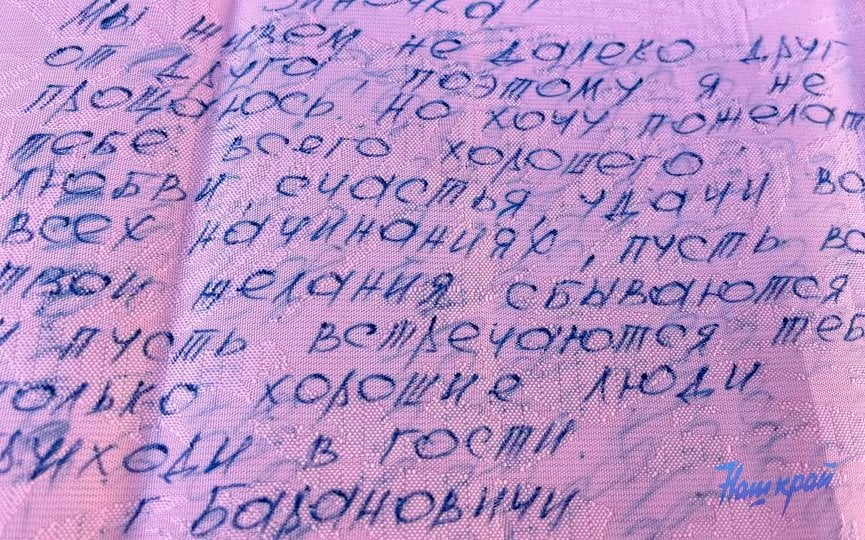 Мы живем не далеко друг
от друга, поэтому я не
прощаюсь. Но хочу пожелат
тебе всего хорошего
Любви, счастья, удачи во
всех начинаниях, пусть вс
твои желания сбываются
и пусть встречаются теб
только хорошие люди
Приходи в гости.
г Барановичи
Наш край